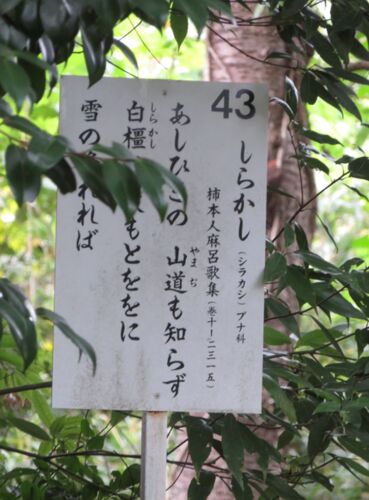 43
しらかし（シラカシ）ブナ科
柿本人麻呂歌集（巻十・二三一五）
あしひ の 山道も知らず
やまぢ
白橿 もとををに
しらかし
雪の れれば